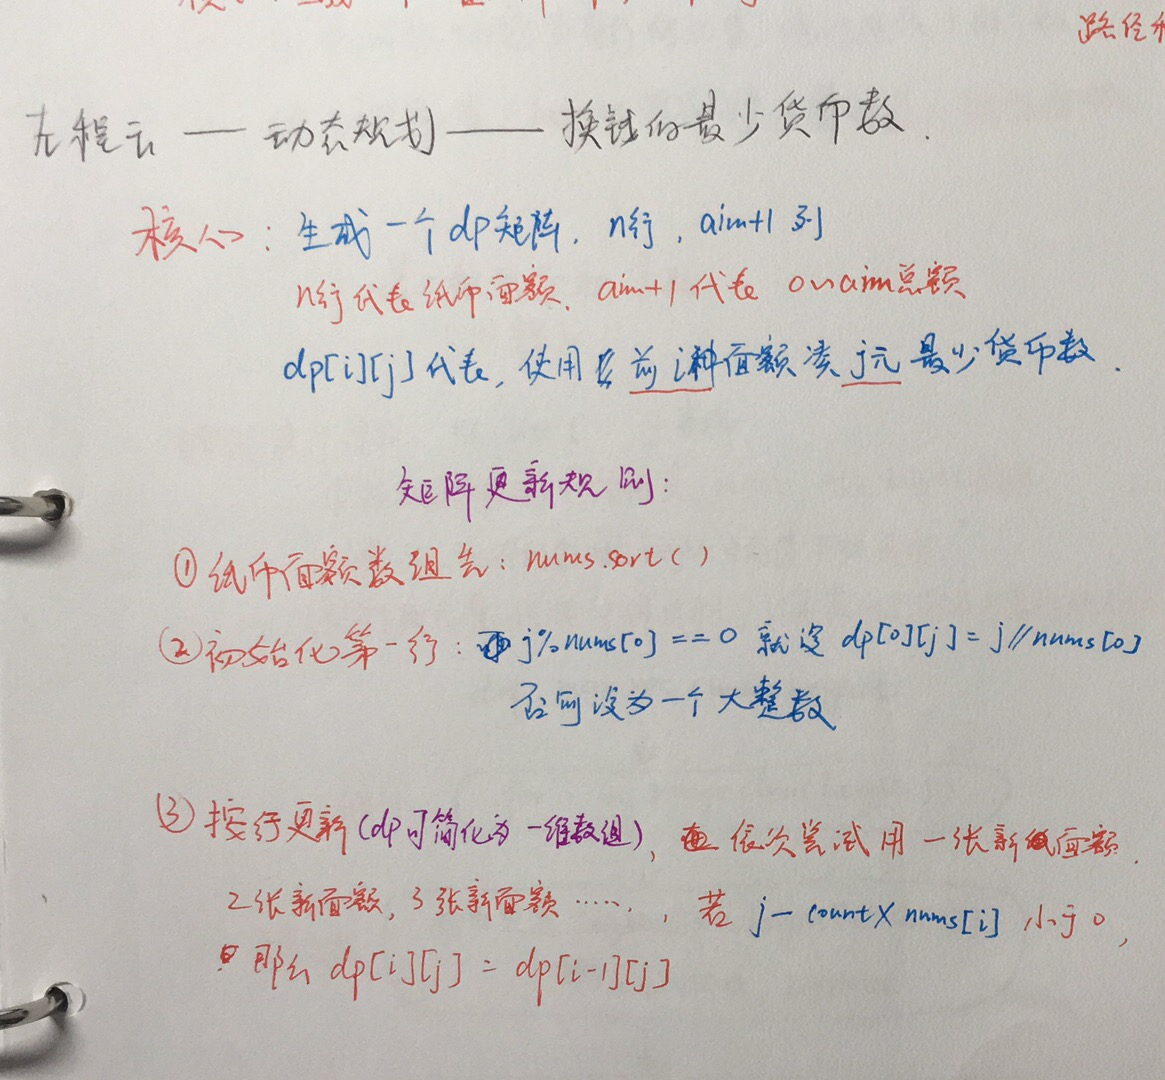 路径
左程云 —— 动态规划 —— 换钱的最少货币数.
核心: 生成一个dp矩阵, n行, aim+1列
n行代表纸币面额, aim+1代表 0~aim总额
dp[i][j]代表, 使用 前i种面额凑j元最少货币数.
矩阵更新规则:
①纸币面额数组先: nums.sort()
②初始化第一行: j%nums[0]==0 就设 dp[0][j]=j//nums[0]
否则设为一个大整数
③按行更新(dp可简化为一维数组), 依次尝试用一张新面额,
2张新面额, 3张新面额……, 若 j-count×nums[i] 小于0,
那么 dp[i][j]=dp[i-1][j]